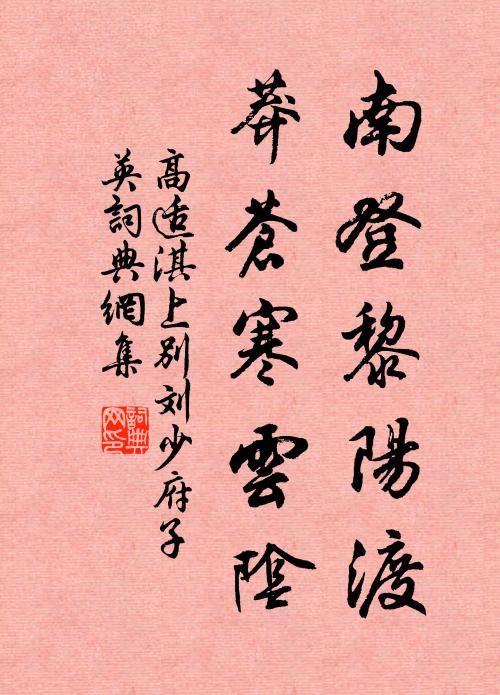 南登黎陽渡
莽蒼寒雲陰
高适淇上別刘少府子
英詞典網集
詞典网印